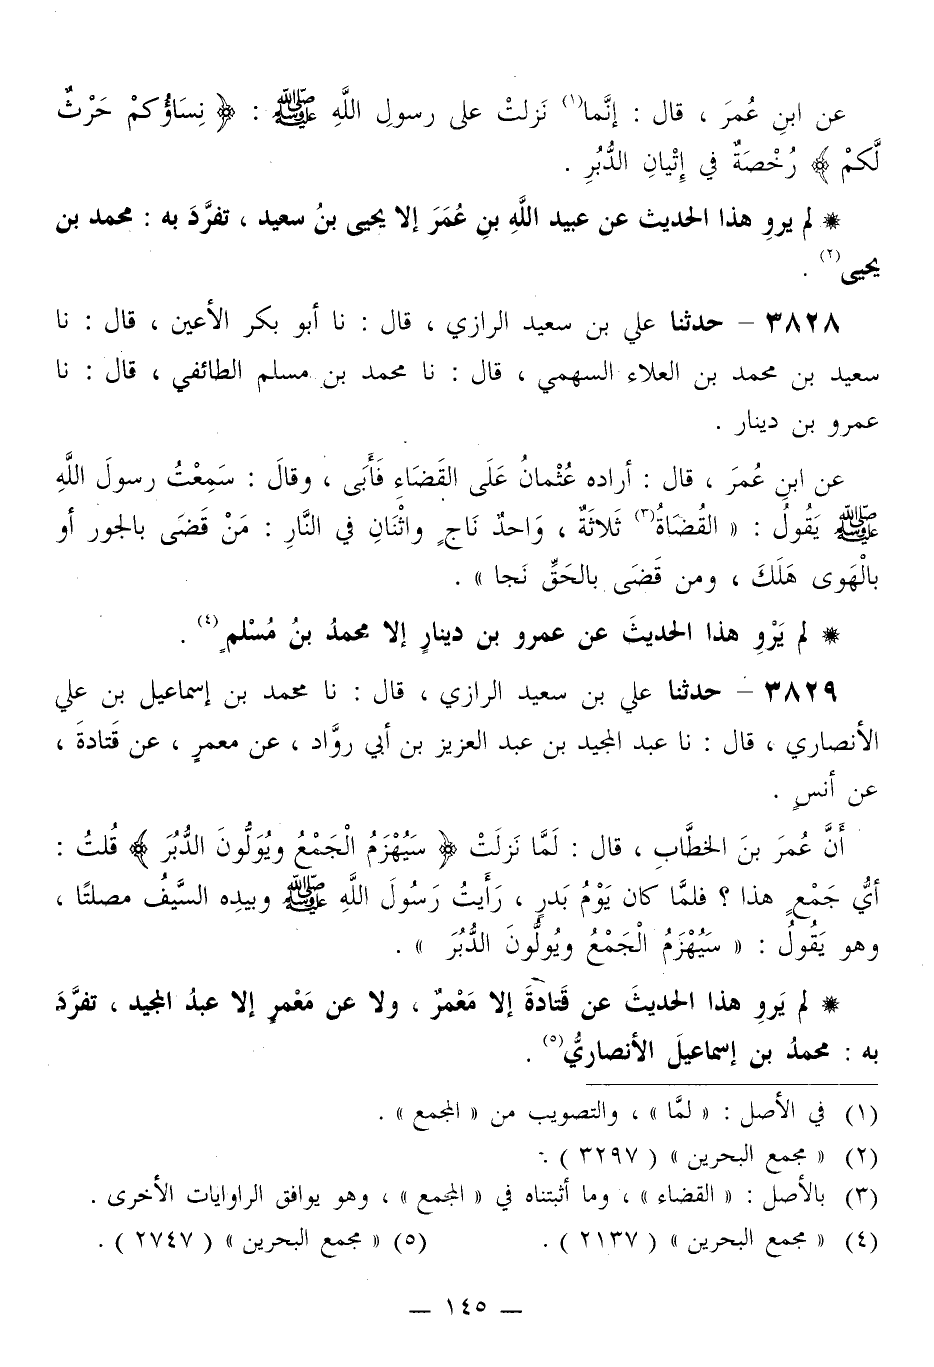 عن ابنِ عُمرَ ، قال : إنَّما(١) نَزلتْ على رسولِ اللَّهِ ﷺ : ﴿ نِسَاؤُكمْ حَرْثٌ
لَّكمْ ﴾ رُخْصَةٌ في إِتْيانِ الدُّبُرِ .
* لم يروِ هذا الحديث عن عبيد اللَّهِ بنِ عُمَرَ إلا يحيى بنُ سعيد ، تفرَّدَ به : محمد بن
يحيى(٢) .
٣٨٢٨ – حدثنا علي بن سعيد الرازي ، قال : نا أبو بكر الأعين ، قال : نا
سعيد بن محمد بن العلاء السهمي ، قال : نا محمد بن مسلم الطائفي ، قال : نا
عمرو بن دينار .
عن ابنِ عُمرَ ، قال : أراده عُثْمانُ عَلَى القَضَاءِ فَأَبَى ، وقالَ : سَمِعْتُ رسولَ اللَّهِ
ﷺ يَقُولُ : « القُضَاةُ(٣) ثَلاثَةٌ ، وَاحدٌ نَاجٍ واثْنَانِ في النَّارِ : مَنْ قَضَى بالجور أو
بالْهَوى هَلَكَ ، ومن قَضَى بالحَقِّ نَجا » .
* لم يَرْوِ هذا الحديثَ عن عمرو بن دينارٍ إلا محمدُ بنُ مُسْلمٍ(٤) .
٣٨٢٩ – حدثنا علي بن سعيد الرازي ، قال : نا محمد بن إسماعيل بن علي
الأنصاري ، قال : نا عبد المجيد بن عبد العزيز بن أبي روَّاد ، عن معمرٍ ، عن قَتادةَ ،
عن أنسٍ .
أَنَّ عُمرَ بنَ الخطَّابِ ، قال : لَمَّا نَزلَتْ ﴿ سَيُهْزَمُ الْجَمْعُ ويُوَلُّونَ الدُّبُرَ ﴾ قُلتُ :
أيُّ جَمْعٍ هذا ؟ فلمَّا كان يَوْمُ بَدرٍ ، رَأَيتُ رَسُولَ اللَّهِ ﷺ وبيدِه السَّيفُ مصلتًا ،
وهو يَقُولُ : « سَيُهْزَمُ الْجَمْعُ ويُولُّونَ الدُّبُرَ » .
* لم يَروِ هذا الحديثَ عن قَتادةَ إلا مَعْمرٌ ، ولا عن مَعْمرٍ إلا عبدُ المجيد ، تفرَّدَ
به : محمدُ بن إسماعيلَ الأنصاريُّ(٥) .
(١) في الأصل : « لمَّا » ، والتصويب من « المجمع » .
(٢) « مجمع البحرين » ( ٣٢٩٧ ) .
(٣) بالأصل : « القضاء » ، وما أثبتناه في « المجمع » ، وهو يوافق الراوايات الأخرى .
(٤) « مجمع البحرين » ( ٢١٣٧ ) . (٥) « مجمع البحرين » ( ٢٧٤٧ ) .
— ١٤٥ —